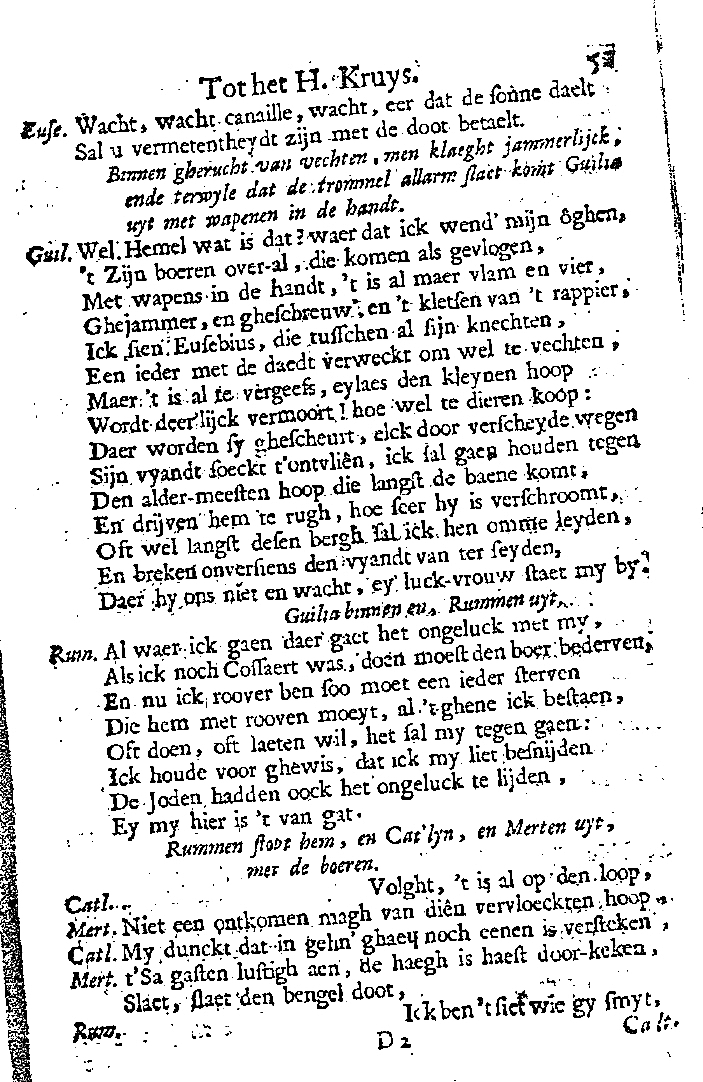 Tot het H. Kruys.
Euse. Wacht, wacht canaille, wacht, eer dat de sonne daelt
Sal u vermetentheydt zijn met de doot betaelt.
Binnen gherucht van vechten, men klaeght jammerlijck,
ende terwyle dat de trommel allarm slaet komt Guilia
uyt met wapenen in de handt.
Guil. Wel Hemel wat is dat? waer dat ick wend' mijn ôghen,
't Zijn boeren over-al, die komen als gevlogen,
Met wapens in de handt, 't is al maer vlam en vier,
Ghejammer, en gheschreuw, en 't kletsen van 't rappier,
Ick sien Eusebius, die tusschen al sijn knechten,
Een ieder met de daedt verweckt om wel te vechten,
Maer 't is al te vergeefs, eylaes den kleynen hoop
Wordt deerlijck vermoort! hoe wel te dieren koop:
Daer worden sy ghescheurt, elck door verscheyde wegen
Sijn vyandt soeckt t'ontvliên, ick sal gaen houden tegen
Den alder-meesten hoop die langst de baene komt,
En drijven hem te rugh, hoe seer hy is verschroomt,
Oft wel langst desen bergh sal ick hen omme leyden,
En breken onversiens den vyandt van ter seyden,
Daer hy ons niet en wacht, ey luck-vrouw staet my by.
Guilia binnen en, Rummen uyt,
Rum. Al waer ick gaen daer gaet het ongeluck met my,
Als ick noch Cossaert was, doen moest den boer bederven,
En nu ick roover ben soo moet een ieder sterven
Die hem met rooven moeyt, al 't ghene ick bestaen,
Oft doen, oft laeten wil, het sal my tegen gaen:
Ick houde voor ghewis, dat ick my liet besnijden
De Joden hadden oock het ongeluck te lijden,
Ey my hier is 't van gat.
Rummen stopt hem, en Cat'lyn, en Merten uyt,
met de boeren.
Catl. Volght, 't is al op den loop,
Mert. Niet een ontkomen magh van diên vervloeckten hoop
Catl. My dunckt dat in gehn' ghaey noch eenen is versteken,
Mert. t'Sa gasten lustigh aen, de haegh is haest door-keken,
Slaet, slaet den bengel doot,
Rum. Ick ben 't sief wie gy smyt,
D 2 Catl.